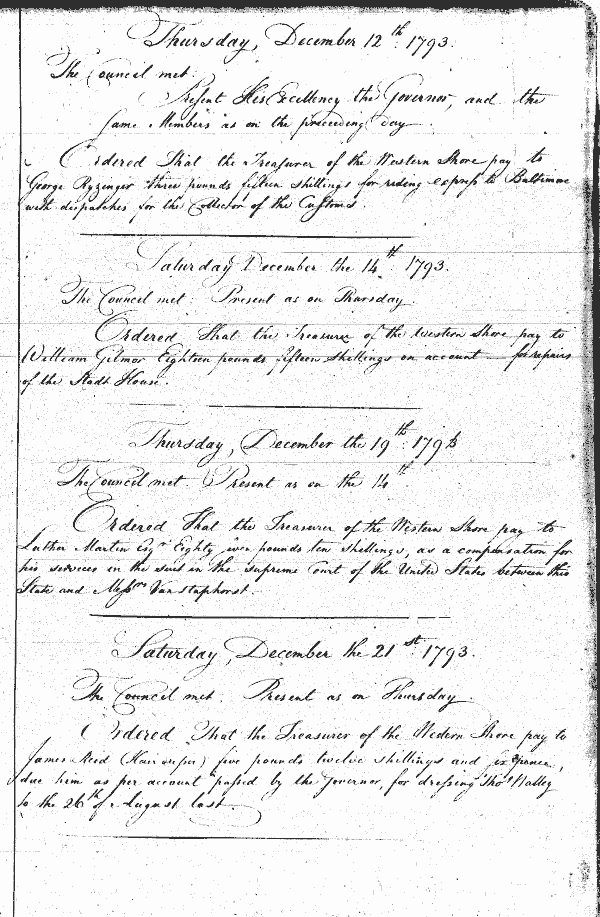 Thursday, December 12th. 1793.
The Council met.
Present His Excellency the Governor, and the
same Members as on the preceeding day.
Ordered That the Treasurer of the Western Shore pay to
George Ryzinger three pounds fifteen shillings for riding express to Baltimore
with dispatches for the Collector of the Customs.
Saturday December the 14th. 1793.
The Council met. Present as on Thursday
Ordered That the Treasurer of the Western Shore pay to
William Gilmor Eighteen pounds fifteen shillings on account — for repairs
of the Stadt House.
Thursday, December the 19th. 1793
The Council met. Present as on the 14th.
Ordered That the Treasurer of the Western Shore pay to
Luther Martin Esqr. Eighty seven pounds ten shillings, as a compensation for
his services in the suit in the supreme Court of the United States between this
State and Messrs Vanstaphorst.
Saturday, December the 21st. 1793.
The Council met. Present as on Thursday.
Ordered That the Treasurer of the Western Shore pay to
James Reid (Hair dresser) five pounds twelve shillings and six pence,
due him as per account passed by the Governor, for dressing Thos.
to the 26th of August last.